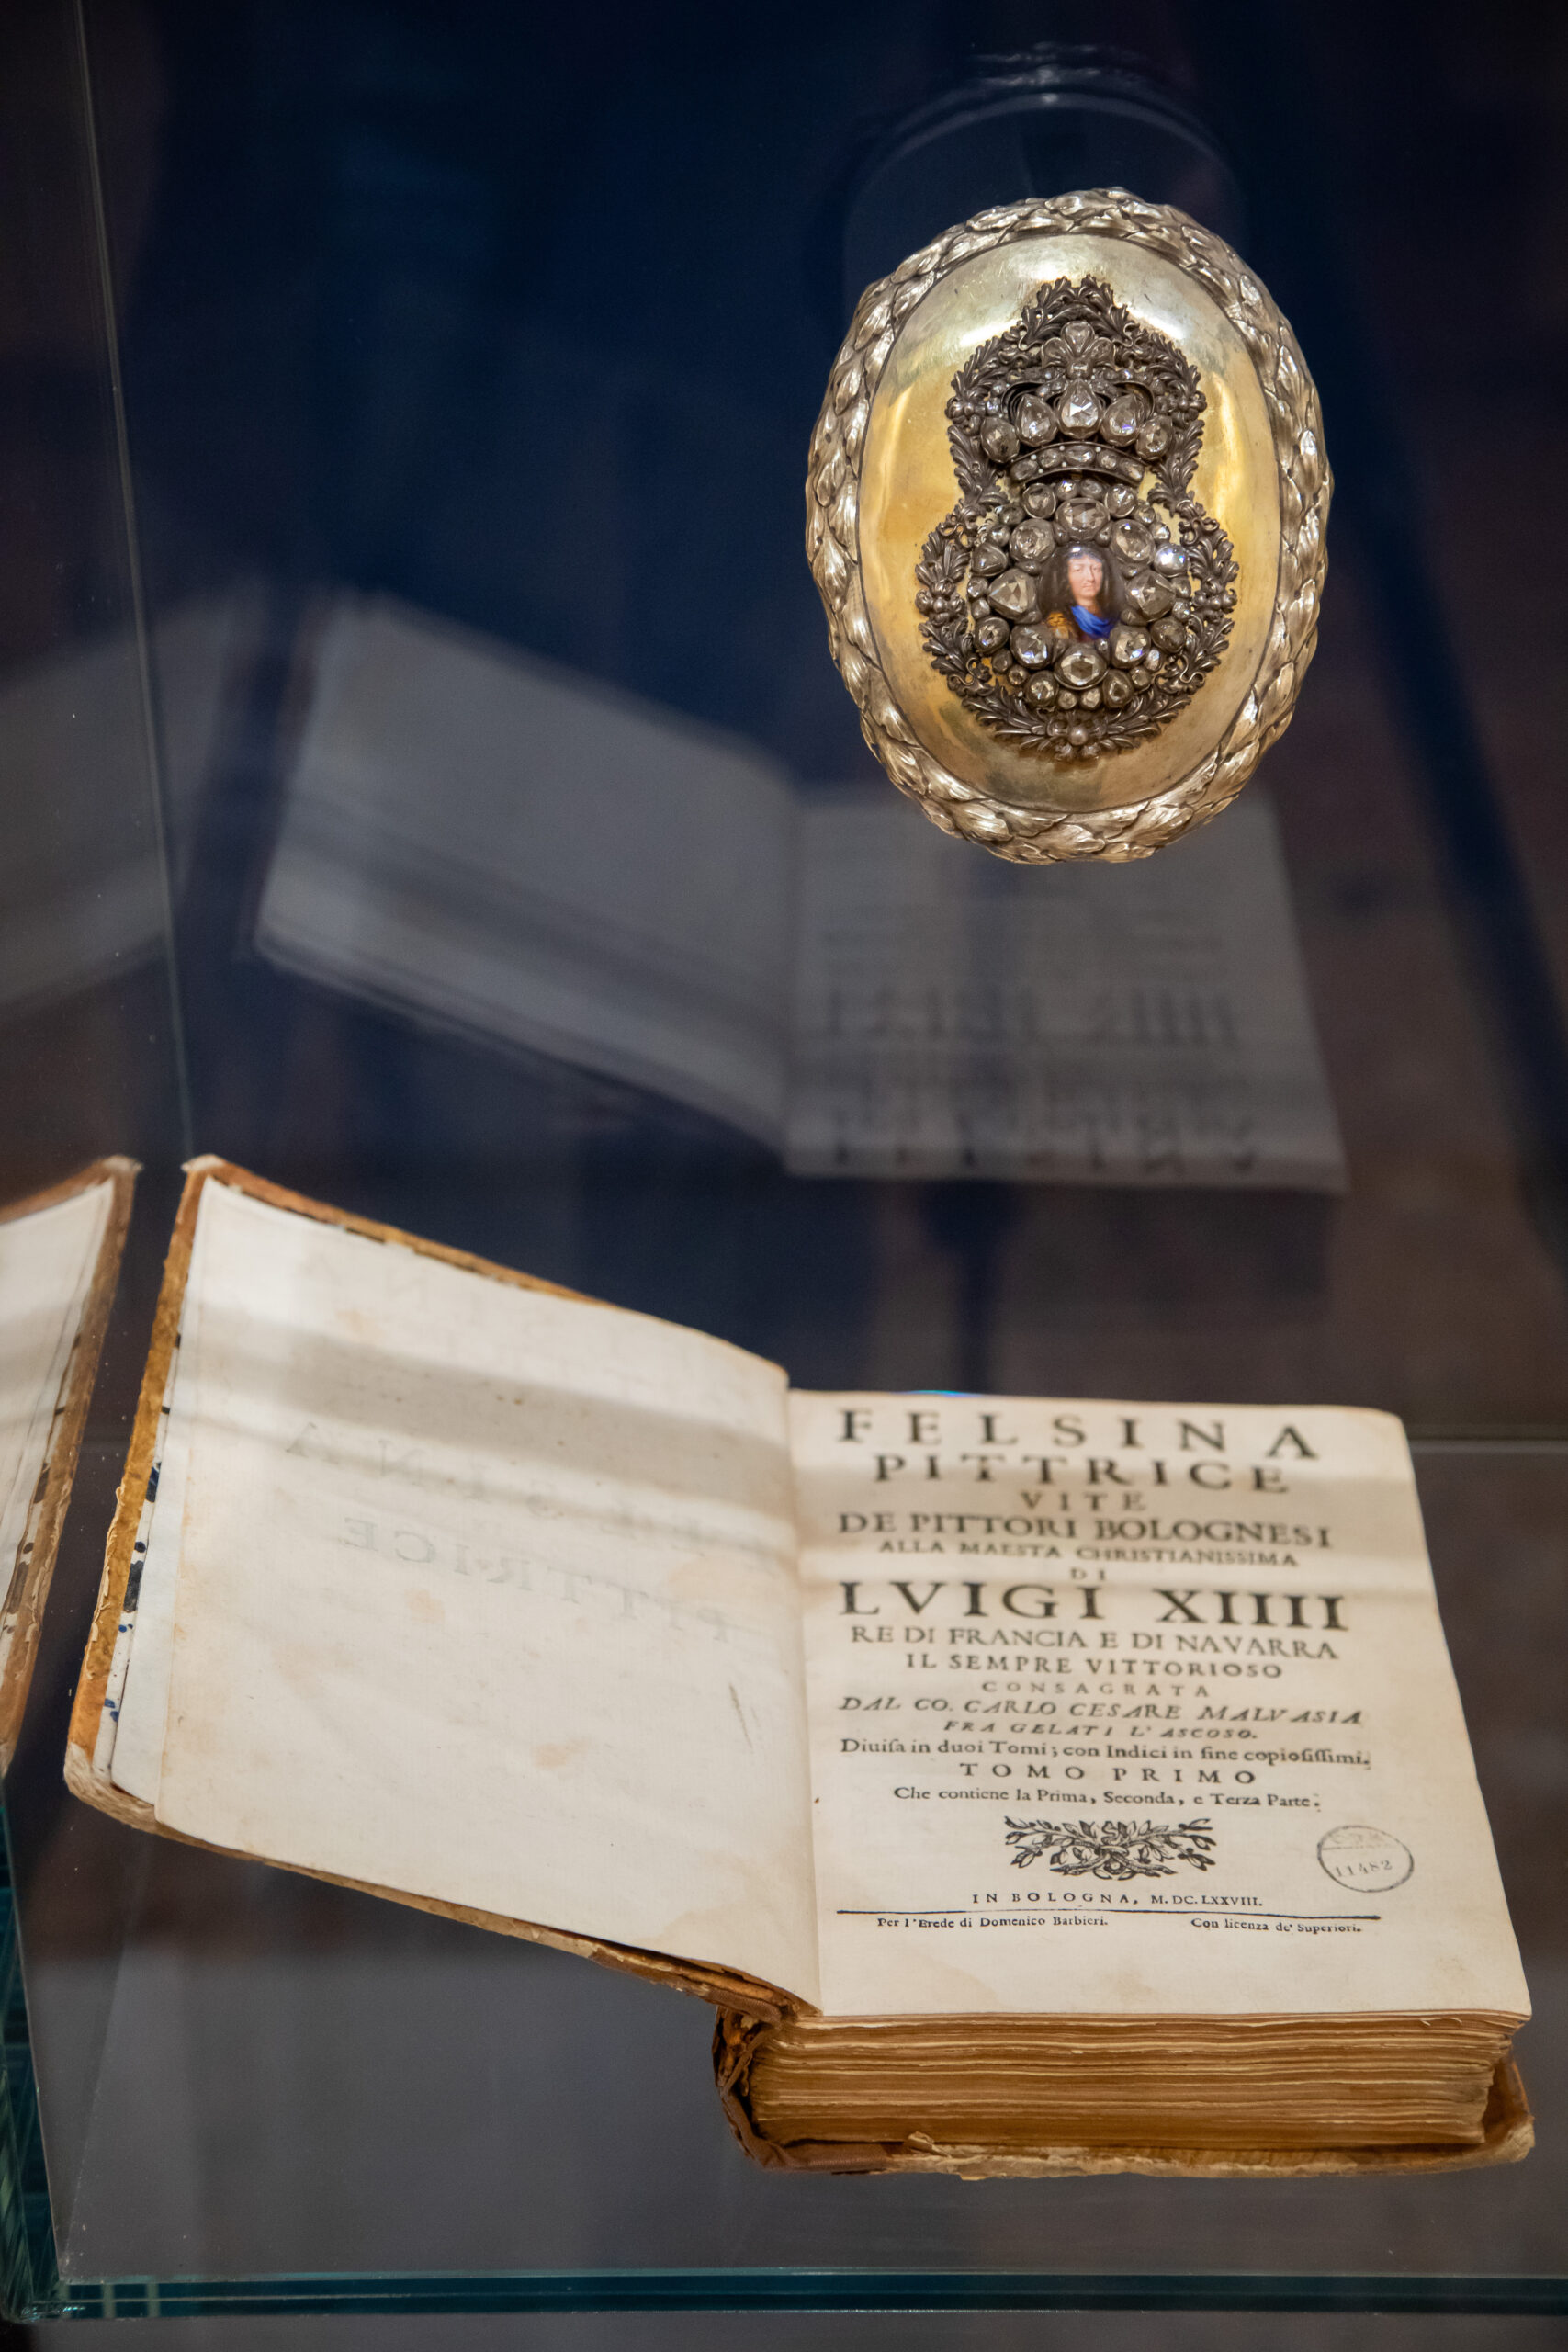 FELSINA
PITTRICE
VITE
DE PITTORI BOLOGNESI
ALLA MAESTA CHRISTIANISSIMA
DI
LVIGI XIIII
RE DI FRANCIA E DI NAVARRA
IL SEMPRE VITTORIOSO
CONSAGRATA
DAL CO. CARLO CESARE MALVASIA
FRA GELATI L'ASCOSO.
Diuiſa in duoi Tomi; con Indici in fine copioſiſſimi.
TOMO PRIMO
Che contiene la Prima, Seconda, e Terza Parte.
11482
IN BOLOGNA, M. DC. LXXVIII.
Per l'Erede di Domenico Barbieri. Con licenza de' Superiori.